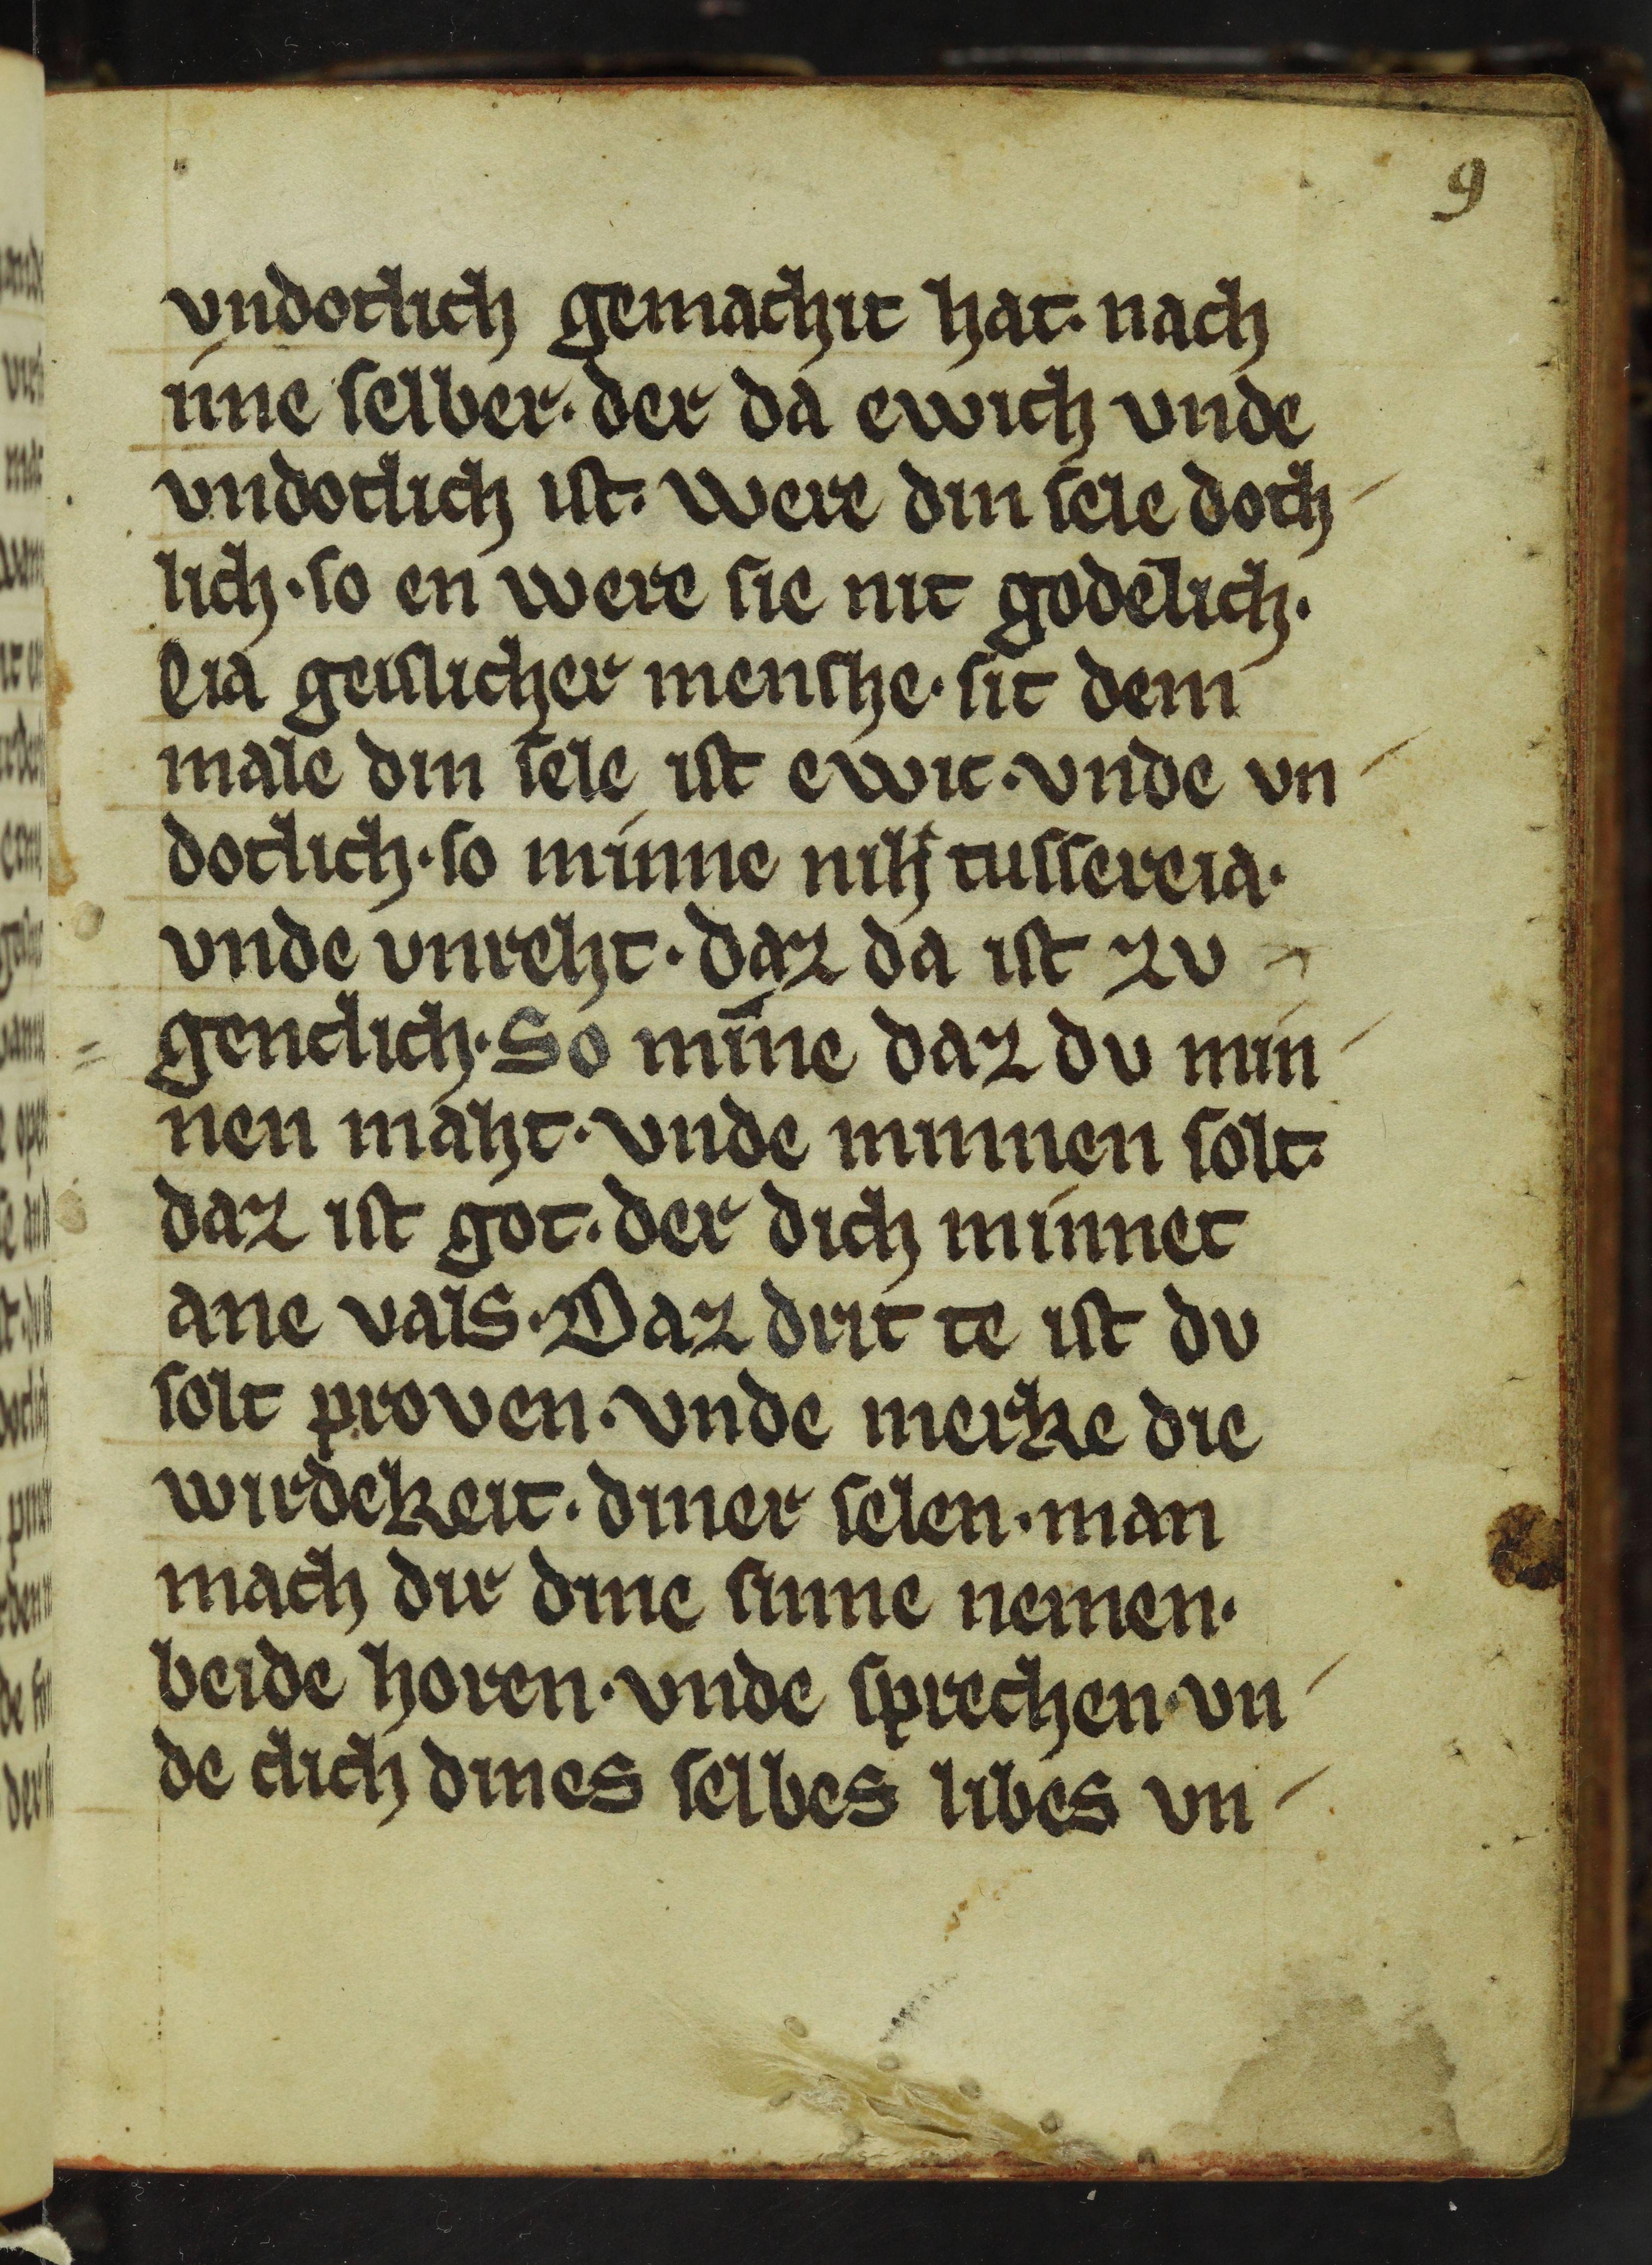 9
vndotlich gemachit hat. nach
ime ſelber. der da ewich vnde
vndotlich iſt. were din ſele doth
lich. ſo en were ſie nit godelich.
Eia geiſlicher menſche. ſit dem
male din ſele iſt ewic. vnde vn
dotlich. ſo minne niht tuſſereia.
vnde vnreht. daz da iſt zv
genclich. So mı̄ne daz dv min
nen maht. vnde minnen ſolt.
daz iſt got. der dich minnet
ane vals. Daz drit te iſt dv
ſolt proven. vnde merke die
wirdekeit. diner ſelen. man
mach dir dine ſinne nemen.
beide horen. vnde ſprechen. vn
de dich dines ſelbes libes vn